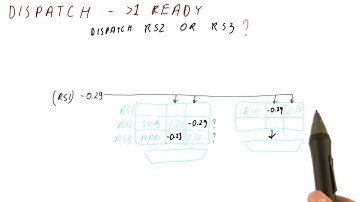 DISPATCH - >1 READY
DISPATCH RS2 OR RS3 ?
(RS1) -0.29
RS1
RS2 SUB -0.29 ?
RS3 ADD -0.29 ?
-0.29